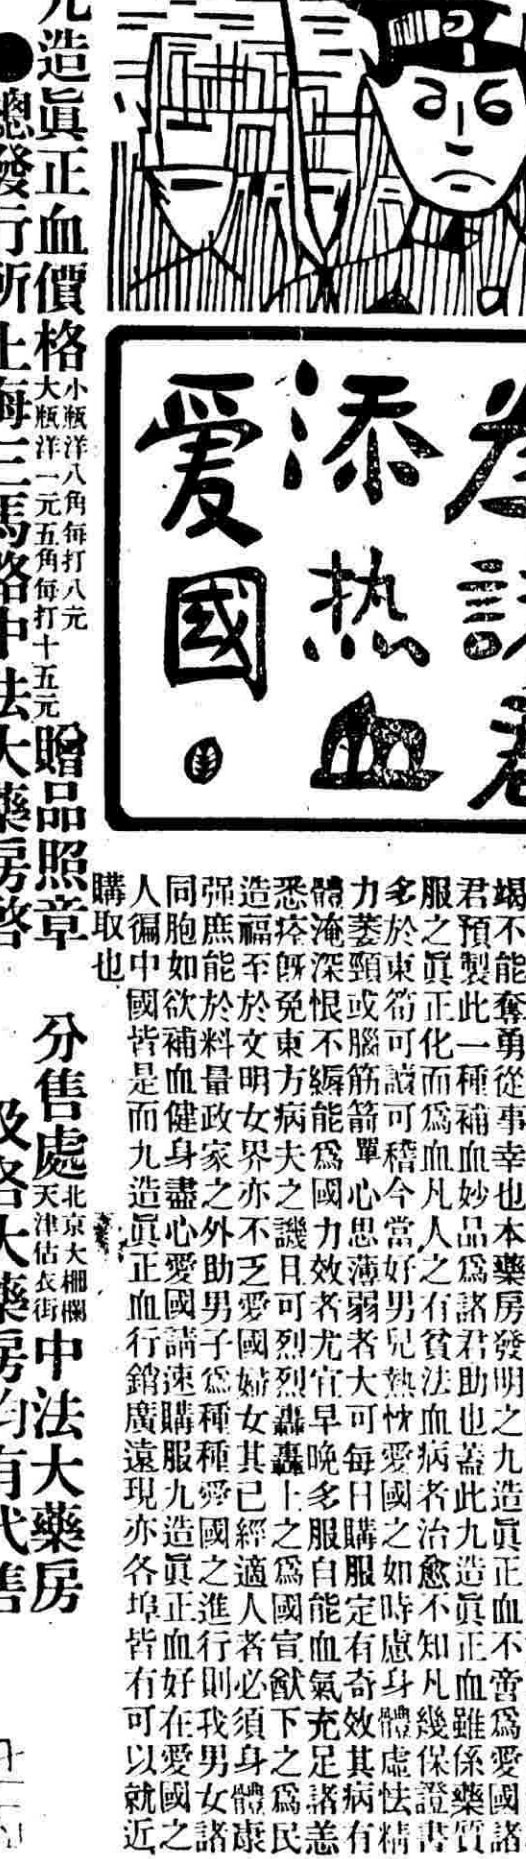 為諸君
添熱血
爱國
竭不能奪勇從事幸也本藥房發明之九造眞正血不啻爲愛國諸
君預製此一種補血妙品爲諸君助也蓋此九造眞正血雖係藥質
服之眞正化而爲血凡人之有貧法血病者治愈不知凡幾保證書
多於東筍可讀可稽今當好男兒熱忱愛國之如時慮身體虛怯精
力萎頸或腦筋箭單心思薄弱者大可每日購服定有奇效其病有
體淹深恨不緱能爲國力效者尤宜早晚多服自能血氣充足諸恙
悉痊旣免東方病夫之譏且可烈烈轟轟上之爲國宣猷下之爲民
造福至於文明女界亦不乏愛國婦女其已經適人者必須身體康
强庶能於料量政家之外助男子爲種種愛國之進行則我男女諸
同胞如欲補血健身盡心愛國請速購服九造眞正血好在愛國之
人徧中國皆是而九造眞正血行銷廣遠現亦各埠皆有可以就近
購取也
九造眞正血價格 小瓶洋八角每打八元
大瓶洋一元五角每打十五元 贈品照章 分售處 北京大柵欄
天津估衣街 中法大藥房
●總發行所上海三馬路中法大藥房啓 及各大藥房均有代售